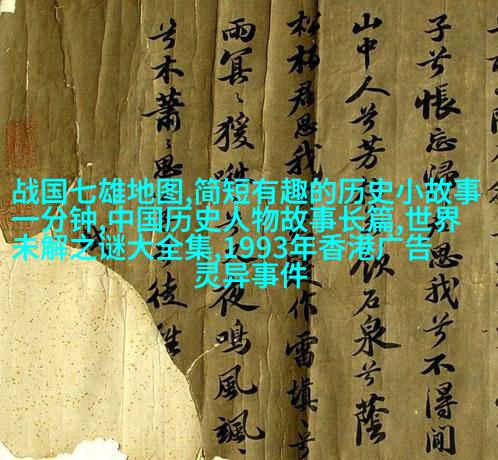 子兮悵忘歸思我兮不得閒
山中人兮芳飲石泉兮蔭
松柏君思我作雷填〻兮
雨冥〻猨夜鳴風颯〻
兮木蕭〻思徒
战国七雄地图,简短有趣的历史小故事
一分钟,中国历史人物故事长篇,世界
未解之谜大全集,1993年香港广告
灵异事件